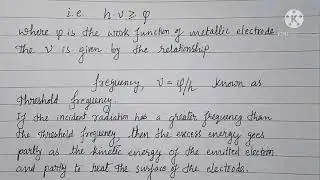 i.e. h·ν ≥ φ
where φ is the work function of metallic electrode.
The ν is given by the relationship
frequency, ν = φ/h known as
Threshold frequency.
If the incident radiation has a greater frequency than
the threshold frequency, then the excess energy goes
partly as the kinetic energy of the emitted electron
and partly to heat the surface of the electrode.